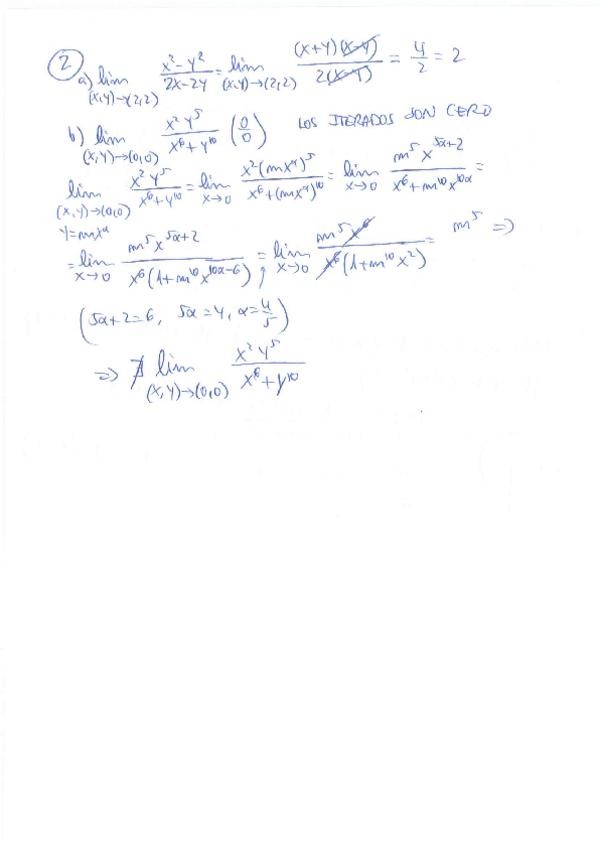 2
a) lim (x,y)→(2,2) (x²-y²)/(2x-2y) = lim (x,y)→(2,2) ((x+y)(x-y))/(2(x-y)) = 4/2 = 2
b) lim (x,y)→(0,0) (x²y⁵)/(x⁶+y¹⁰) (0/0) LOS ITERADOS SON CERO
lim (x,y)→(0,0) y=mxᵅ (x²y⁵)/(x⁶+y¹⁰) = lim x→0 (x²(mxᵅ)⁵)/(x⁶+(mxᵅ)¹⁰) = lim x→0 (m⁵x^(5α+2))/(x⁶+m¹⁰x^(10α)) =
= lim x→0 (m⁵x^(5α+2))/(x⁶(1+m¹⁰x^(10α-6))) = lim x→0 (m⁵x⁶)/(x⁶(1+m¹⁰x²)) = m⁵ ⇒
(5α+2=6, 5α=4, α=4/5)
⇒ ∄ lim (x,y)→(0,0) (x²y⁵)/(x⁶+y¹⁰)